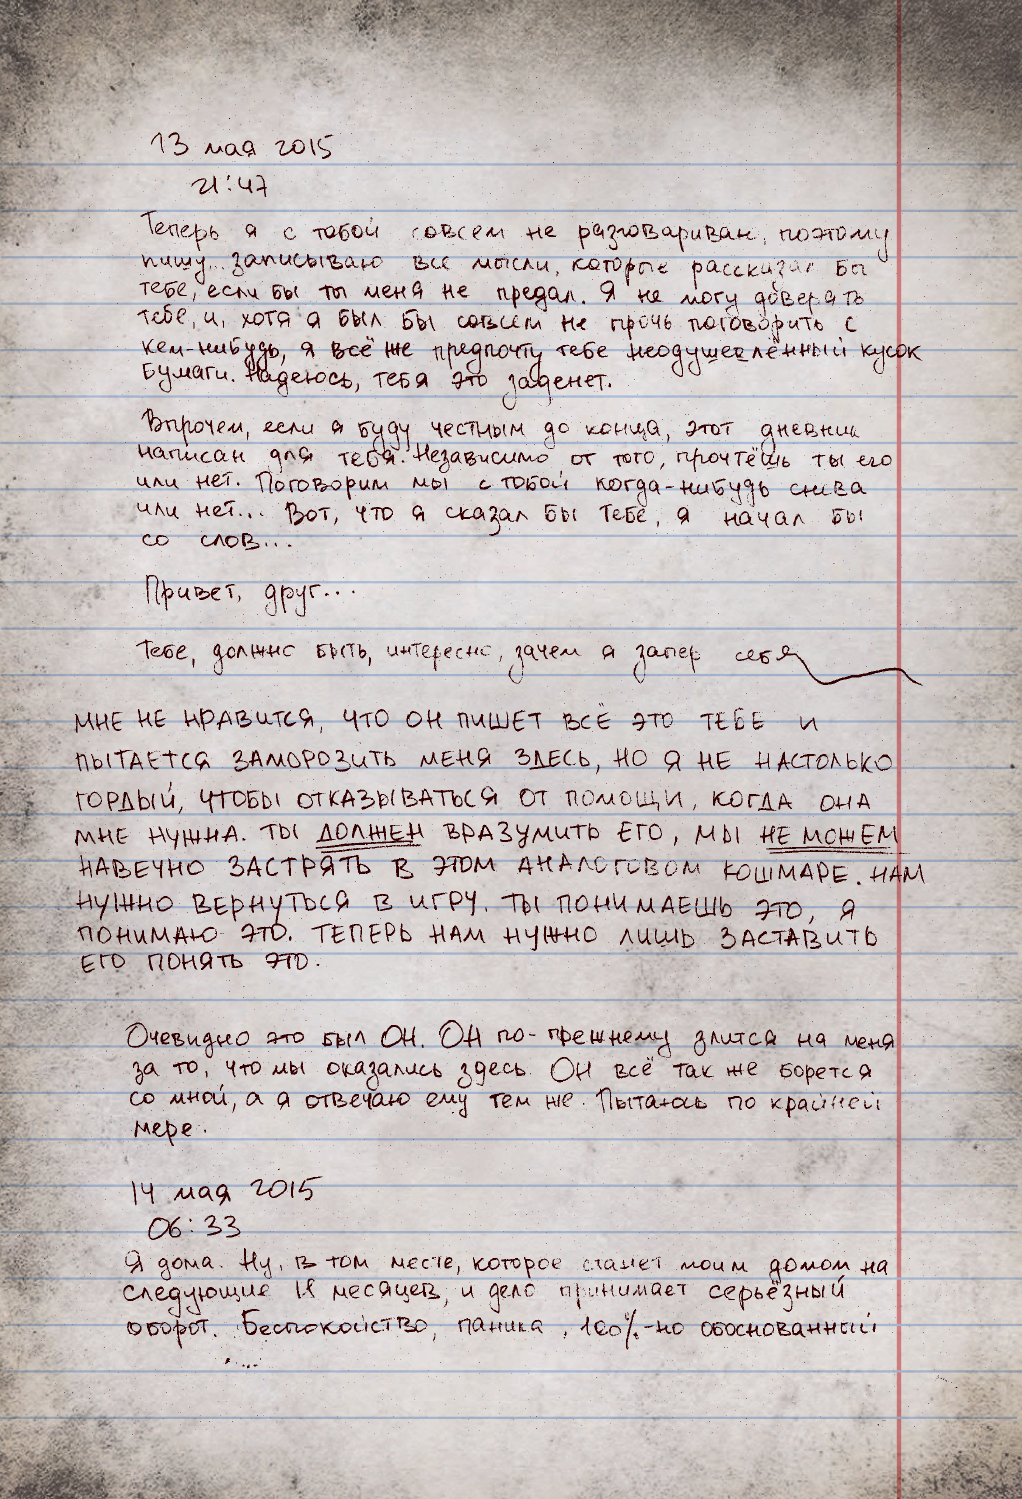 13 мая 2015
21:47
Теперь я с тобой совсем не разговариван, поэтому
пишу... записываю все мысли, которые рассказал бы
тебе, если бы ты меня не предал. Я не могу доверять
тебе, и, хотя я был бы совсем не прочь поговорить с
кем-нибудь, я всё же предпочту тебе неодушевлённый кусок
бумаги. Надеюсь, тебя это заденет.
Впрочем, если я буду честным до конца, этот дневник
написан для тебя. Независимо от того, прочтёшь ты его
или нет. Поговорим мы с тобой когда-нибудь снова
или нет... Вот, что я сказал бы тебе, я начал бы
со слов...
Привет, друг...
Тебе, должно быть, интересно, зачем я запер себя
МНЕ НЕ НРАВИТСЯ, ЧТО ОН ПИШЕТ ВСЁ ЭТО ТЕБЕ И
ПЫТАЕТСЯ ЗАМОРОЗИТЬ МЕНЯ ЗДЕСЬ, НО Я НЕ НАСТОЛЬКО
ГОРДЫЙ, ЧТОБЫ ОТКАЗЫВАТЬСЯ ОТ ПОМОЩИ, КОГДА ОНА
МНЕ НУЖНА. ТЫ ДОЛЖЕН ВРАЗУМИТЬ ЕГО, МЫ НЕ МОЖЕМ
НАВЕЧНО ЗАСТРЯТЬ В ЭТОМ АНАЛОГОВОМ КОШМАРЕ. НАМ
НУЖНО ВЕРНУТЬСЯ В ИГРУ. ТЫ ПОНИМАЕШЬ ЭТО, Я
ПОНИМАЮ ЭТО. ТЕПЕРЬ НАМ НУЖНО ЛИШЬ ЗАСТАВИТЬ
ЕГО ПОНЯТЬ ЭТО.
Очевидно это был ОН. ОН по-прежнему злится на меня
за то, что мы оказались здесь. ОН всё так же борется
со мной, а я отвечаю ему тем же. Пытаюсь по крайней
мере.
14 мая 2015
06:33
Я дома. Ну, в том месте, которое станет моим домом на
следующие 18 месяцев, и дело принимает серьёзный
оборот. Беспокойство, паника, 100%-но обоснованный